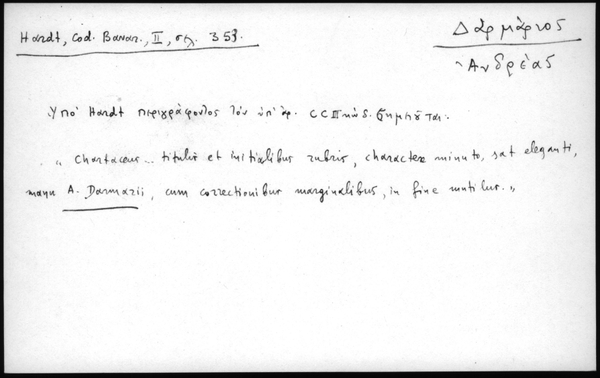 Hardt, Cod. Bavar., II, σελ. 353.
Δαρμάριος
Ἀνδρέας
Ὑπὸ Hardt περιγράφοντος τὸν ὑπ' ἀρ. CCII κώδ. σημειοῦται.
„ Chartaceus... titulis et initialibus rubris, charactere minuto, sat eleganti,
manu A. Darmarii, cum correctionibus marginalibus, in fine mutilus. „